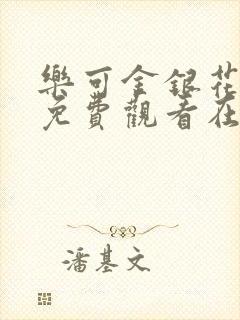 樂可金銀花
免費觀看在
潘基文